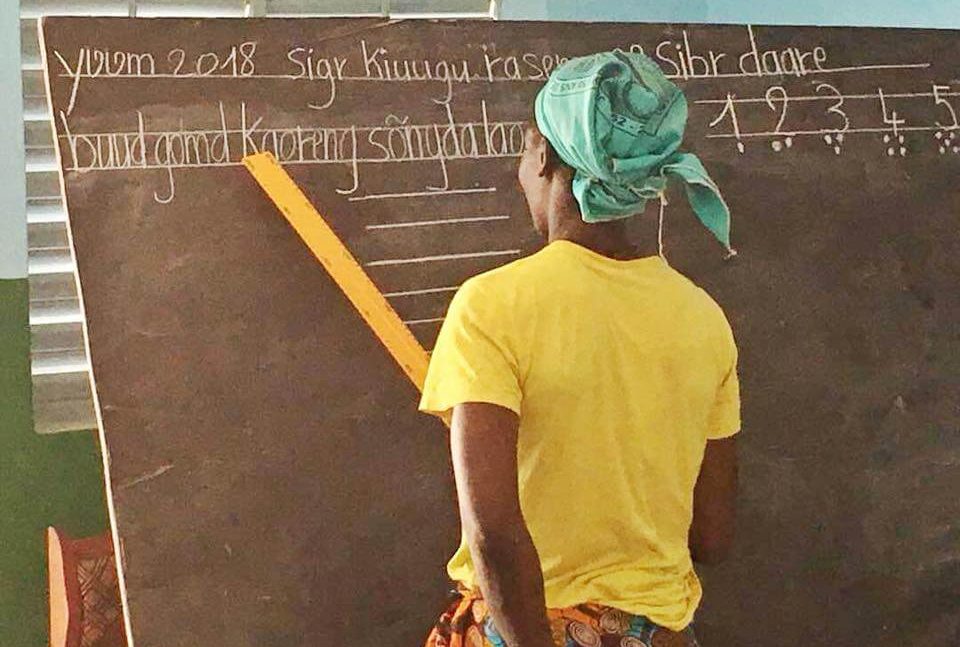 yʋʋm 2018 Sigr Kiuugu Sibr daare
buud gomd Kaoreng sõngda
1 2 3 4 5